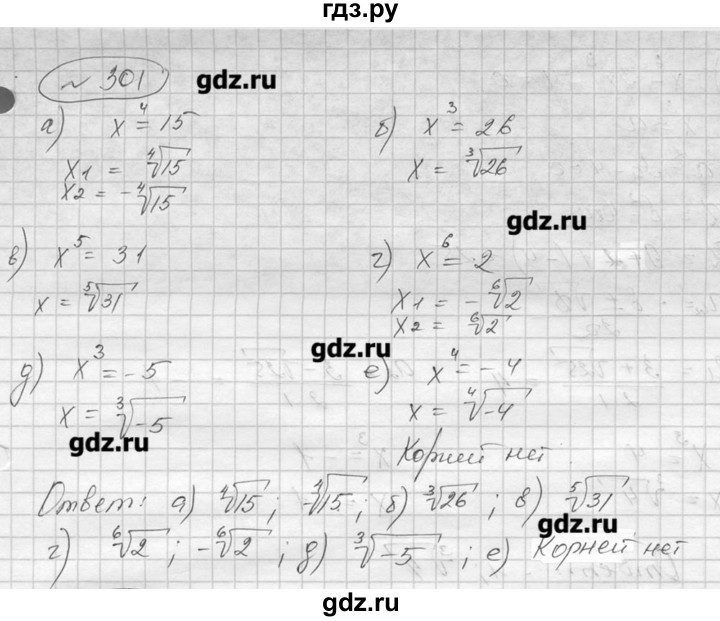 гдз.ру
№ 301
gdz.ru
а) x⁴ = 15
x1 = ⁴√15
x2 = -⁴√15
б) x³ = 26
x = ³√26
gdz.ru
в) x⁵ = 31
x = ⁵√31
г) x⁶ = 2
x1 = -⁶√2
x2 = ⁶√2
gdz.ru
д) x³ = -5
x = ³√-5
gdz.ru
е) x⁴ = -4
x = ⁴√-4
Корней нет.
Ответ: а) ⁴√15; -⁴√15; б) ³√26; в) ⁵√31
gdz.ru
г) ⁶√2; -⁶√2; д) ³√-5; е) Корней нет
gdz.ru